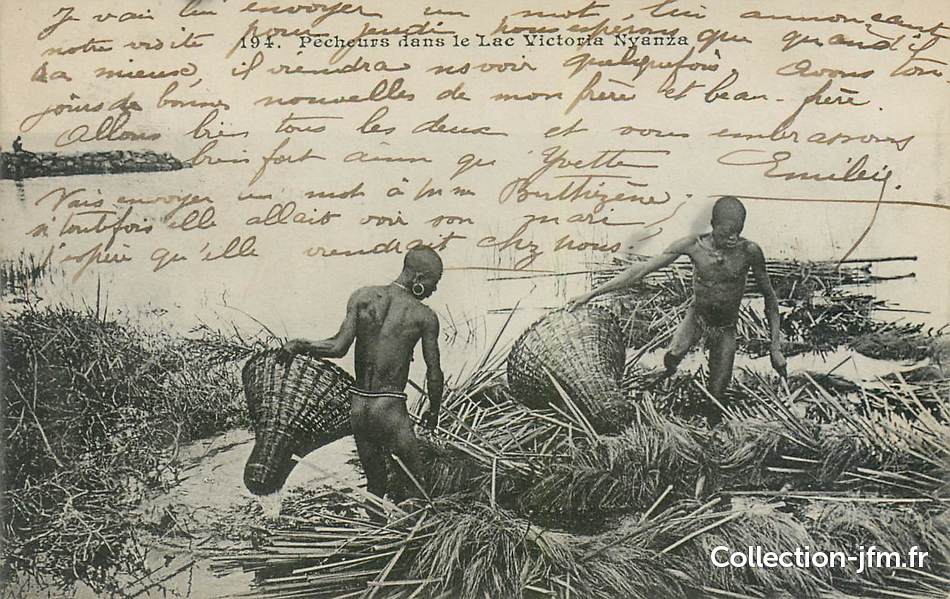 Je vais lui envoyer un mot lui annonçant
194. Pêcheurs dans le Lac Victoria Nyanza
notre visite pour jeudi nous pense que quand il
sa mieux, il viendra ns voir quelquefois, Avons tou-
jours de bonnes nouvelles de mon frère et beau-frère.
Allons bien tous les deux et vous embrassons
bien fort ainsi qu' Yvette Emilie.
Vais envoyer un mot à Mme
si toutefois elle allait voir son mari
j'espère qu'elle viendrait chez nous.
Collection-jfm.fr